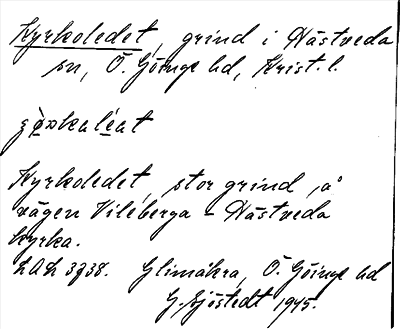 Kyrkoledet, grind i Hästveda
sn, Ö. Göinge hd, Krist. l.
Kyrkoledet, stor grind, på
vägen Vileberga - Hästveda
kyrka.
LAL 3938. Glimåkra, Ö. Göinge hd
G. Sjöstedt 1945.